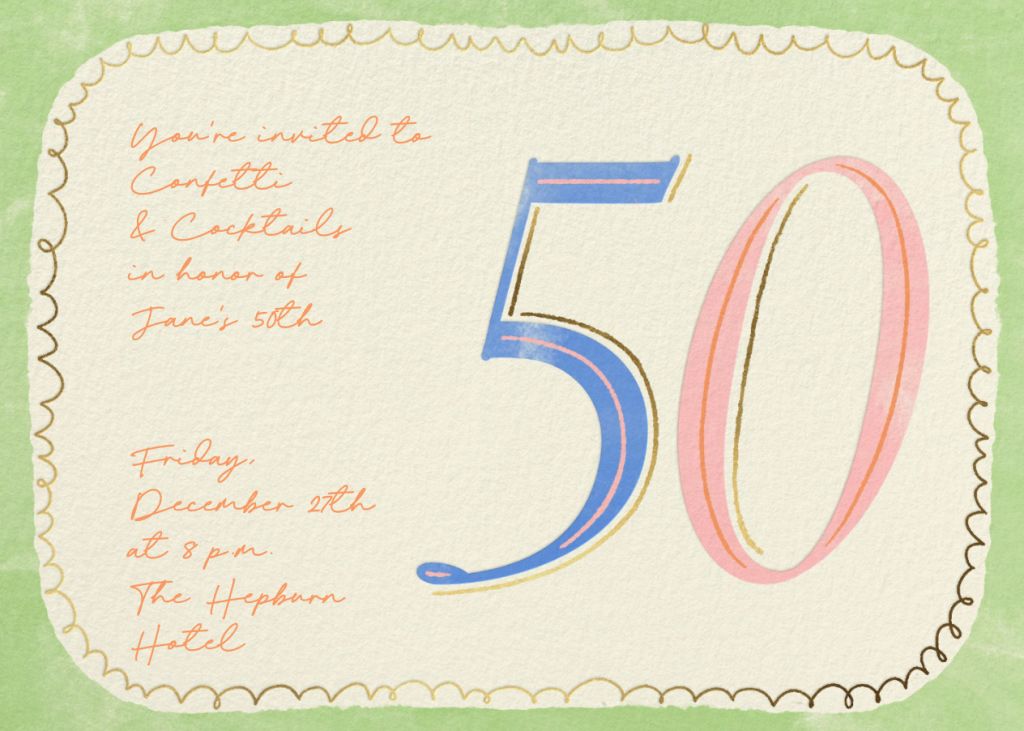 You're invited to
Confetti
& Cocktails
in honor of
Jane's 50th
50
Friday,
December 27th
at 8 p.m.
The Hepburn
Hotel